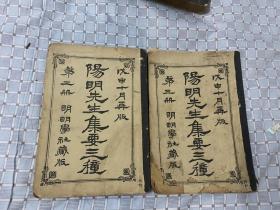 戊申十月再版
陽明先生集要三種
第二冊 明明學社藏版
戊申十月再版
陽明先生集要三種
第三冊 明明學社藏版